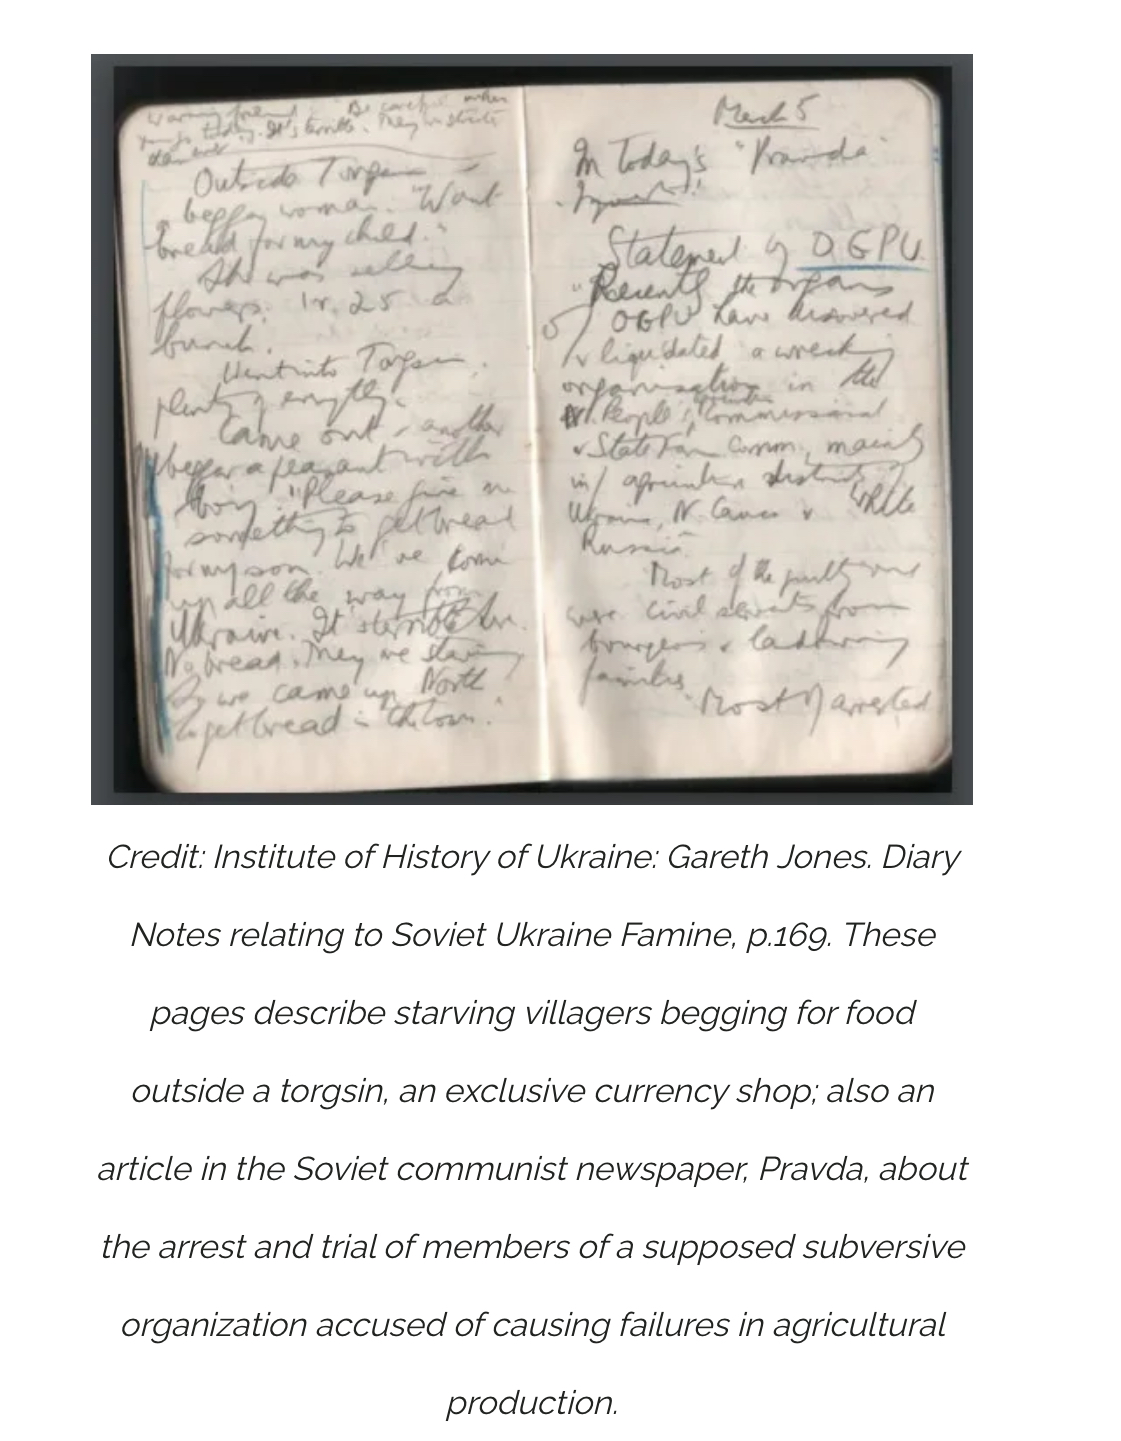 Be careful when
you go today. It's terrible. They
Outside Torgsin
a beggar woman. "Want
bread for my child."
She was selling
flowers. 1r. 25 a
bunch.
Went into Torgsin.
plenty of everything.
Came out, another
beggar a peasant with
boy. "Please give me
something to get bread
for my son. We've come
up all the way from
Ukraine. It's terrible there.
No bread. They are starving
So we came up North
to get bread in the town."
March 5
In Today's "Pravda"
Statement of OGPU
"Recently the organs
of OGPU have discovered
& liquidated a wrecking
organisation in the
People's Commissariat
& State Farm Comm., mainly
in agricultural districts of
Ukraine, N. Cauc. & White
Russia.
Most of the guilty ones
were civil servants from
bourgeois & landowning
families.
Most of arrested
Credit: Institute of History of Ukraine: Gareth Jones. Diary
Notes relating to Soviet Ukraine Famine, p.169. These
pages describe starving villagers begging for food
outside a torgsin, an exclusive currency shop; also an
article in the Soviet communist newspaper, Pravda, about
the arrest and trial of members of a supposed subversive
organization accused of causing failures in agricultural
production.